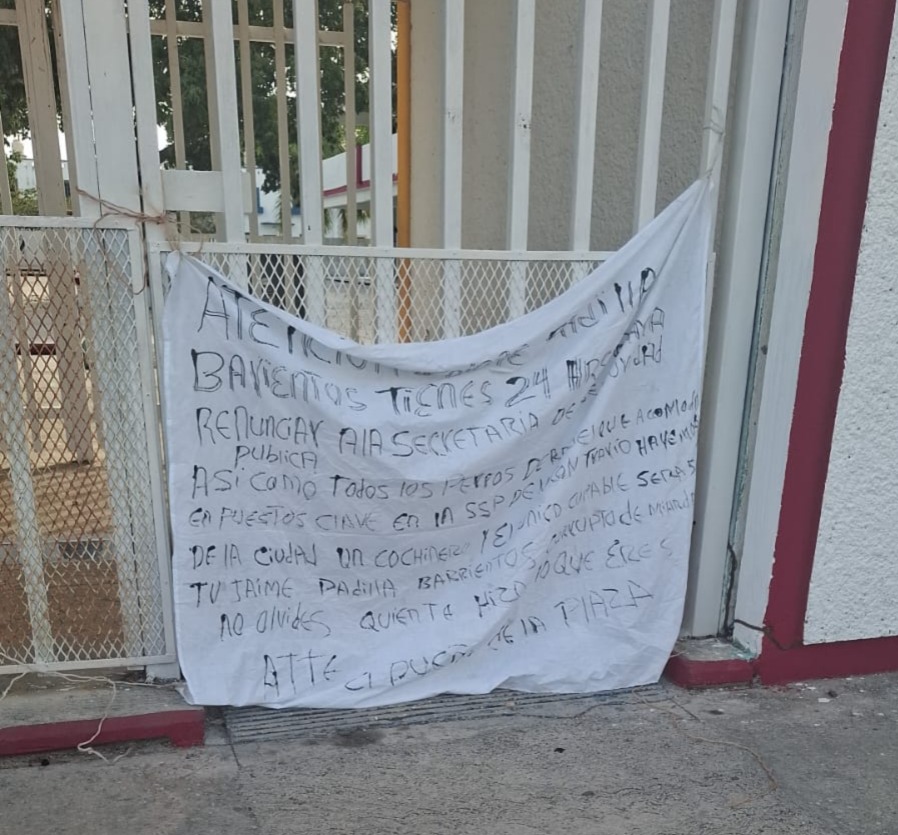 ATENCION PADILLA
BARRIENTOS TIENES 24 HRS PARA
RENUNCIAR A LA SECRETARIA DE SEGURIDAD
PUBLICA
ASI COMO TODOS LOS PERROS DE QUE ACOMODA
EN PUESTOS CLAVE EN LA SSP DE
DE LA CIUDAD UN COCHINERO Y EL UNICO CULPABLE SERAS
TU JAIME PADILLA BARRIENTOS CORRUPTO DE
NO OLVIDES QUIEN TE HIZO LO QUE ERES
ATTE DE LA PLAZA